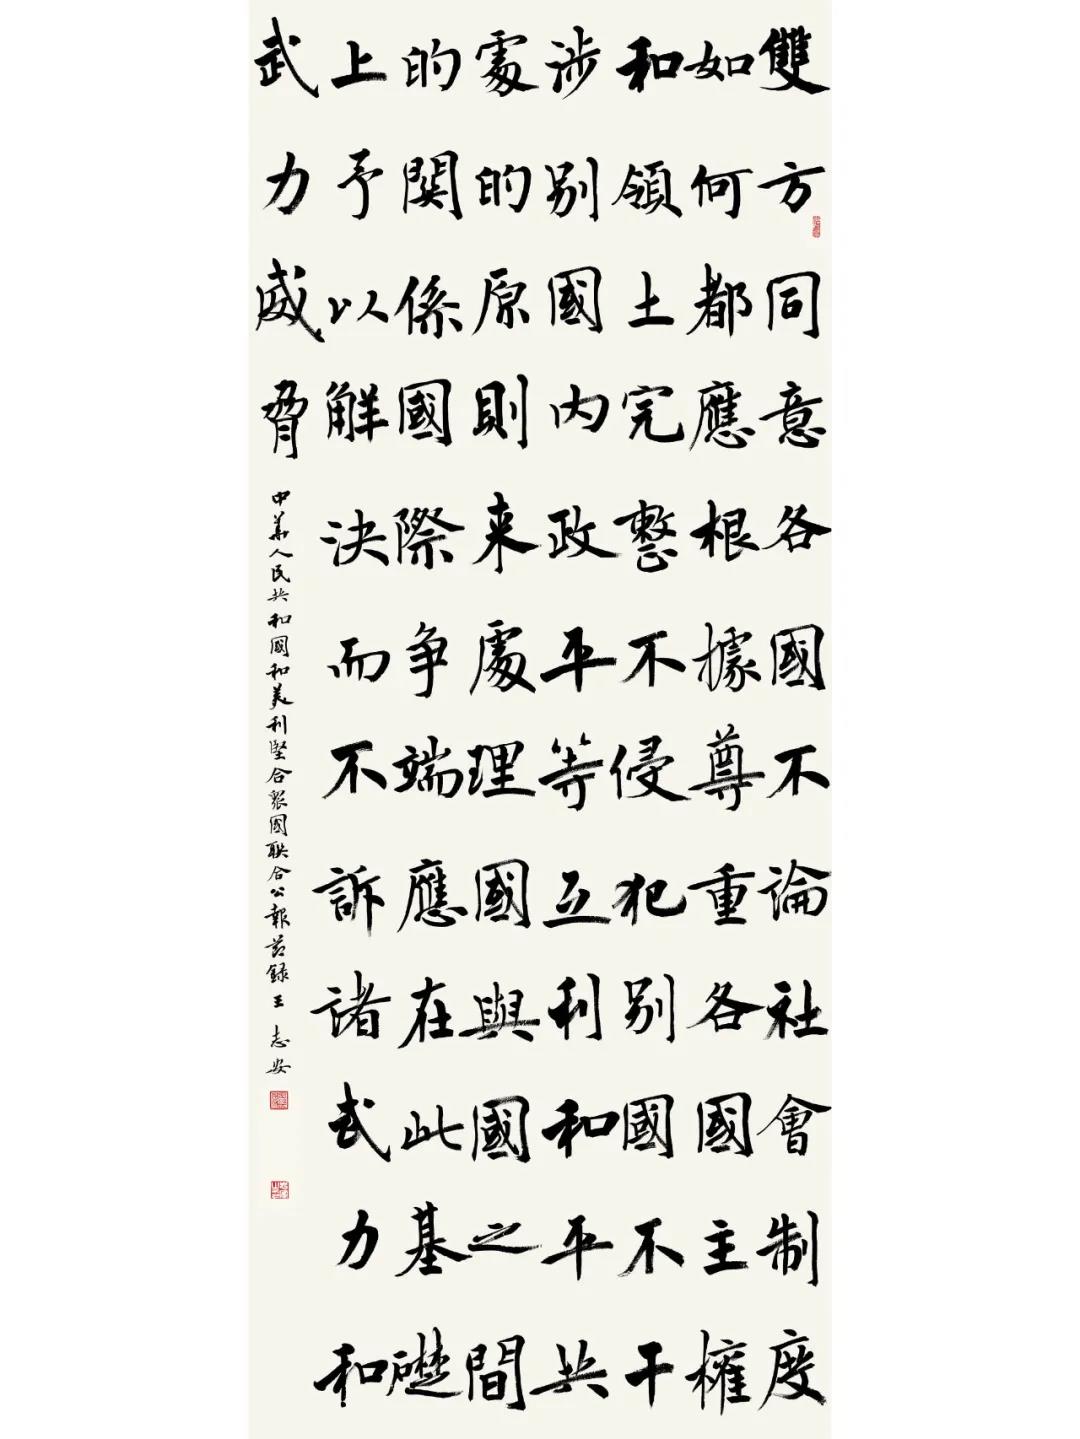 雙方同意各國不論社會制度
如何都應根據尊重各國國主權
和領土完整不侵犯别國不干
涉别國内政平等互利和平共
處的原則来處理國與國之間
的關係國際争端應在此基礎
上予以解決而不訴諸武力和
武力威脅
中華人民共和國和美利堅合衆國联合公報節錄王志安